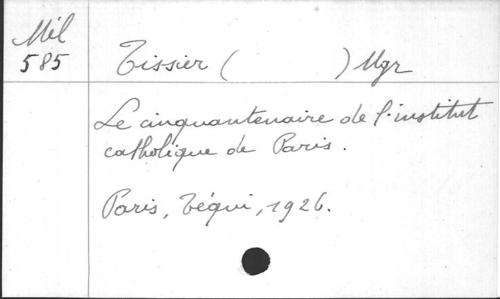 Mél
585
Tissier ( ) Mgr
Le cinquantenaire de l'institut
catholique de Paris.
Paris, Téqui, 1926.